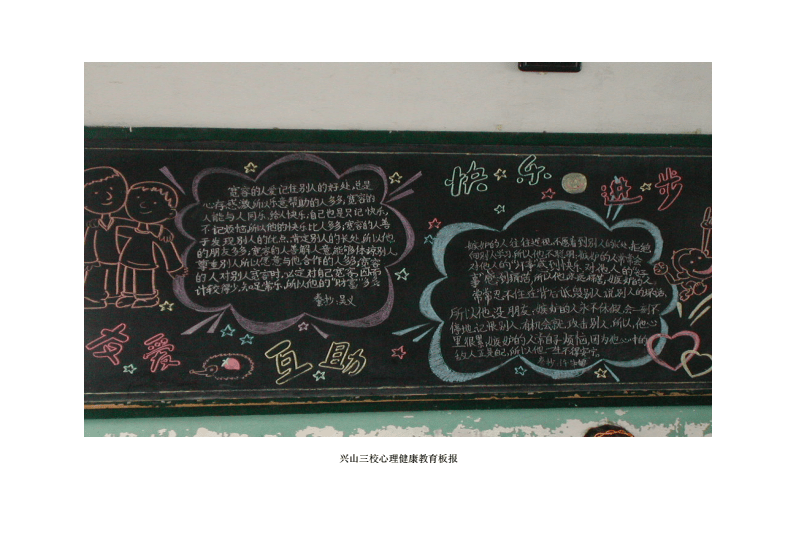 快乐 进步
宽容的人爱记住别人的好处,总是
心存感激,所以乐意帮助的人多,宽容的
人能与人同乐,给人快乐,自己也是只记快乐,
不记烦恼,所以他的快乐比人多,宽容的人善
于发现别人的优点,肯定别人的长处,所以他
的朋友多,宽容的人善解人意,能够体谅别人,
尊重别人所以愿意与他合作的人多,宽容
的人对别人宽容时,必定对自己宽容,因而
计较得少,去叹常乐,所以他的“财富”多
摘抄:吴义
嫉妒的人往往迟狠,不愿看到别人的长处,拒绝
向别人学习,所以他不聪明,嫉妒的人常常会
对他人的“坏事”感到快乐,对他人的“好
事”感到痛苦,所以他
嫉妒的人
常常忍不住在背后诋毁别人,说别人的坏话,
所以他没朋友,嫉妒的人永不休假,会一刻不
停地记恨别人,有机会就攻击别人,所以,他心
里很累,嫉妒的人常自寻烦恼,因为他心中的
敌人正是自己,所以他一生不得安宁。
摘抄:
友爱 互助
兴山三校心理健康教育板报